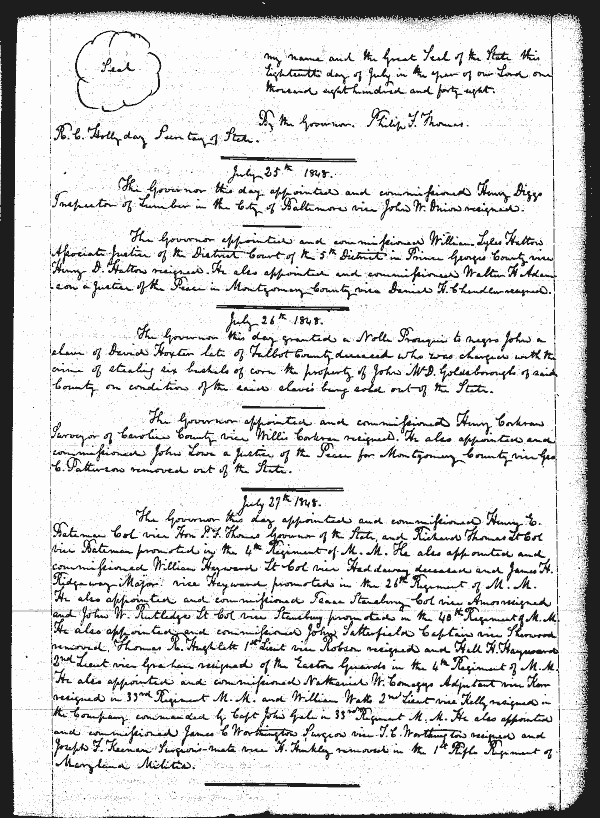 Seal
my name and the Great Seal of the State this
Eighteenth day of July in the year of our Lord one
thousand eight hundred and forty eight.
By the Governor. Philip F. Thomas.
R. C. Hollyday Secretary of State.
July 25th 1848.
The Governor this day appointed and commissioned Henry Diggs
Inspector of Lumber in the City of Baltimore vice John W. resigned.
The Governor appointed and commissioned William Lyles Hatton
Associate Justice of the District Court of the 5th District in Prince Georges County vice
Henry D. Hatton resigned. He also appointed and commissioned Walter H Adam
son a Justice of the Peace in Montgomery County vice Daniel H. Chandler resigned.
July 26th 1848.
The Governor this day granted a Nolle Prosequi to negro John a
slave of David Hoxter late of Talbot County deceased who was charged with the
crime of stealing six bushels of corn the property of John McD. Goldsborough of said
County on condition of the said slave's being sold out of the State.
The Governor appointed and commissioned Henry Corkran
Surveyor of Caroline County vice Willis Corkran resigned. He also appointed and
commissioned John Lowe a Justice of the Peace for Montgomery County vice Geo
C. Patterson removed out of the State.
July 27th 1848.
The Governor this day appointed and commissioned Henry E.
Bateman Col vice Hon P. F. Thomas Governor of the State, and Richard Thomas Lt Col
vice Bateman promoted in the 4th Regiment of M. M. He also appointed and
commissioned William Hayward Lt Col vice Haddaway deceased and James H.
Ridgeway Major vice Hayward promoted in the 26th Regiment of M. M.
He also appointed and commissioned Isaac Stansbury Col vice Amos resigned
and John W. Rutledge Lt Col vice Stansbury promoted in the 40th Regiment of M. M.
He also appointed and commissioned John Satterfield Captain vice Sherwood
removed, Thomas R. 1st Lieut vice Robson resigned and Hall H. Hayward
2nd Lieut vice Graham resigned of the Easton Guards in the 4th Regiment of M. M.
He also appointed and commissioned Nathaniel W. Comegys Adjutant vice Kerr
resigned in 33rd Regiment M. M. and William Watts 2nd Lieut vice Kelly resigned in
the Company commanded by Capt John Gale in 33rd Regiment M. M. He also appointed
and commissioned James C Worthington Surgeon vice T. C. Worthington resigned and
Joseph F. Keenan Surgeon's-mate vice H. Hinkley removed in the 1st Rifle Regiment of
Maryland Militia.